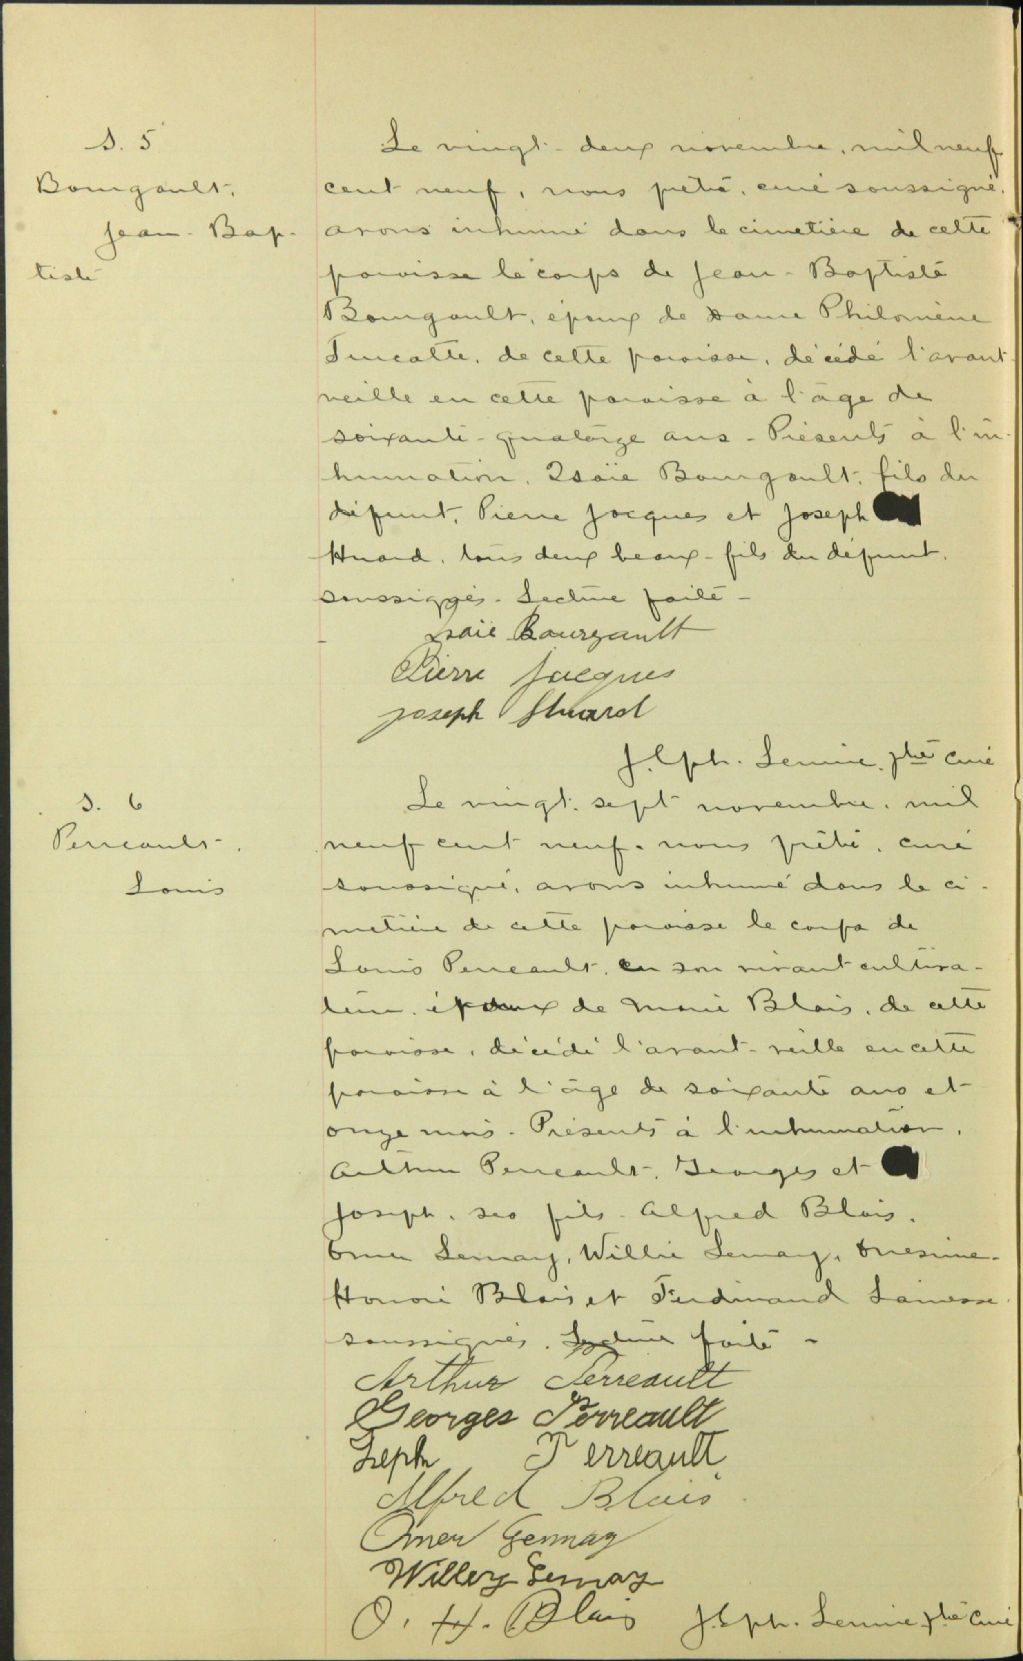 S. 5
Bourgault,
Jean-Bap-
tiste
Le vingt-deux novembre, mil neuf
cent neuf, nous prêtre, curé soussigné,
avons inhumé dans le cimetière de cette
paroisse le corps de Jean-Baptiste
Bourgault, époux de Dame Philomène
Turcotte, de cette paroisse, décédé l'avant-
veille en cette paroisse à l'âge de
soixante-quatorze ans - Présents à l'in-
humation, Isaïe Bourgault, fils du
défunt, Pierre Jacques et Joseph
Huard, tous deux beaux-fils du défunt,
soussignés. Lecture faite -
Isaïe Bourgault
Pierre Jacques
Joseph Huard
J. Eph. Lemire, ptre curé
S. 6
Perreault,
Louis
Le vingt-sept novembre, mil
neuf cent neuf, nous prêtre, curé
soussigné, avons inhumé dans le ci-
metière de cette paroisse le corps de
Louis Perreault, en son vivant cultiva-
teur, époux de Marie Blais, de cette
paroisse, décédé l'avant-veille en cette
paroisse à l'âge de soixante ans et
onze mois - Présents à l'inhumation,
Arthur Perreault, Georges et
Joseph, ses fils - Alfred Blais,
Omer Lemay, Willie Lemay, Onésime-
Honoré Blais et Ferdinand
soussignés. Lecture faite -
Arthur Perreault
Georges Perreault
Perreault
Alfred Blais
Omer Lemay
Willey Lemay
O. H. Blais
J. Eph. Lemire, ptre curé